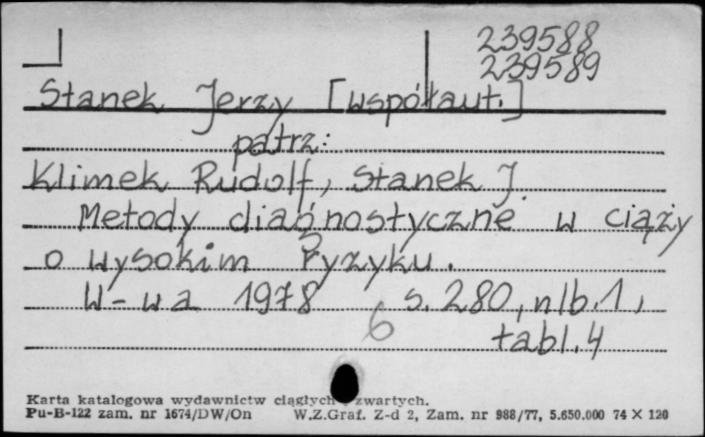 239588
239589
Stanek Jerzy [współaut.]
patrz:
Klimek Rudolf, Stanek J.
Metody diagnostyczne w ciąży
o wysokim ryzyku.
W-wa 1978 s. 280, nlb. 1,
6 tabl. 4
Karta katalogowa wydawnictw ciągłych zwartych.
Pu-B-122 zam. nr 1674/DW/On W.Z.Graf. Z-d 2, Zam. nr 988/77, 5.650.000 74 X 120